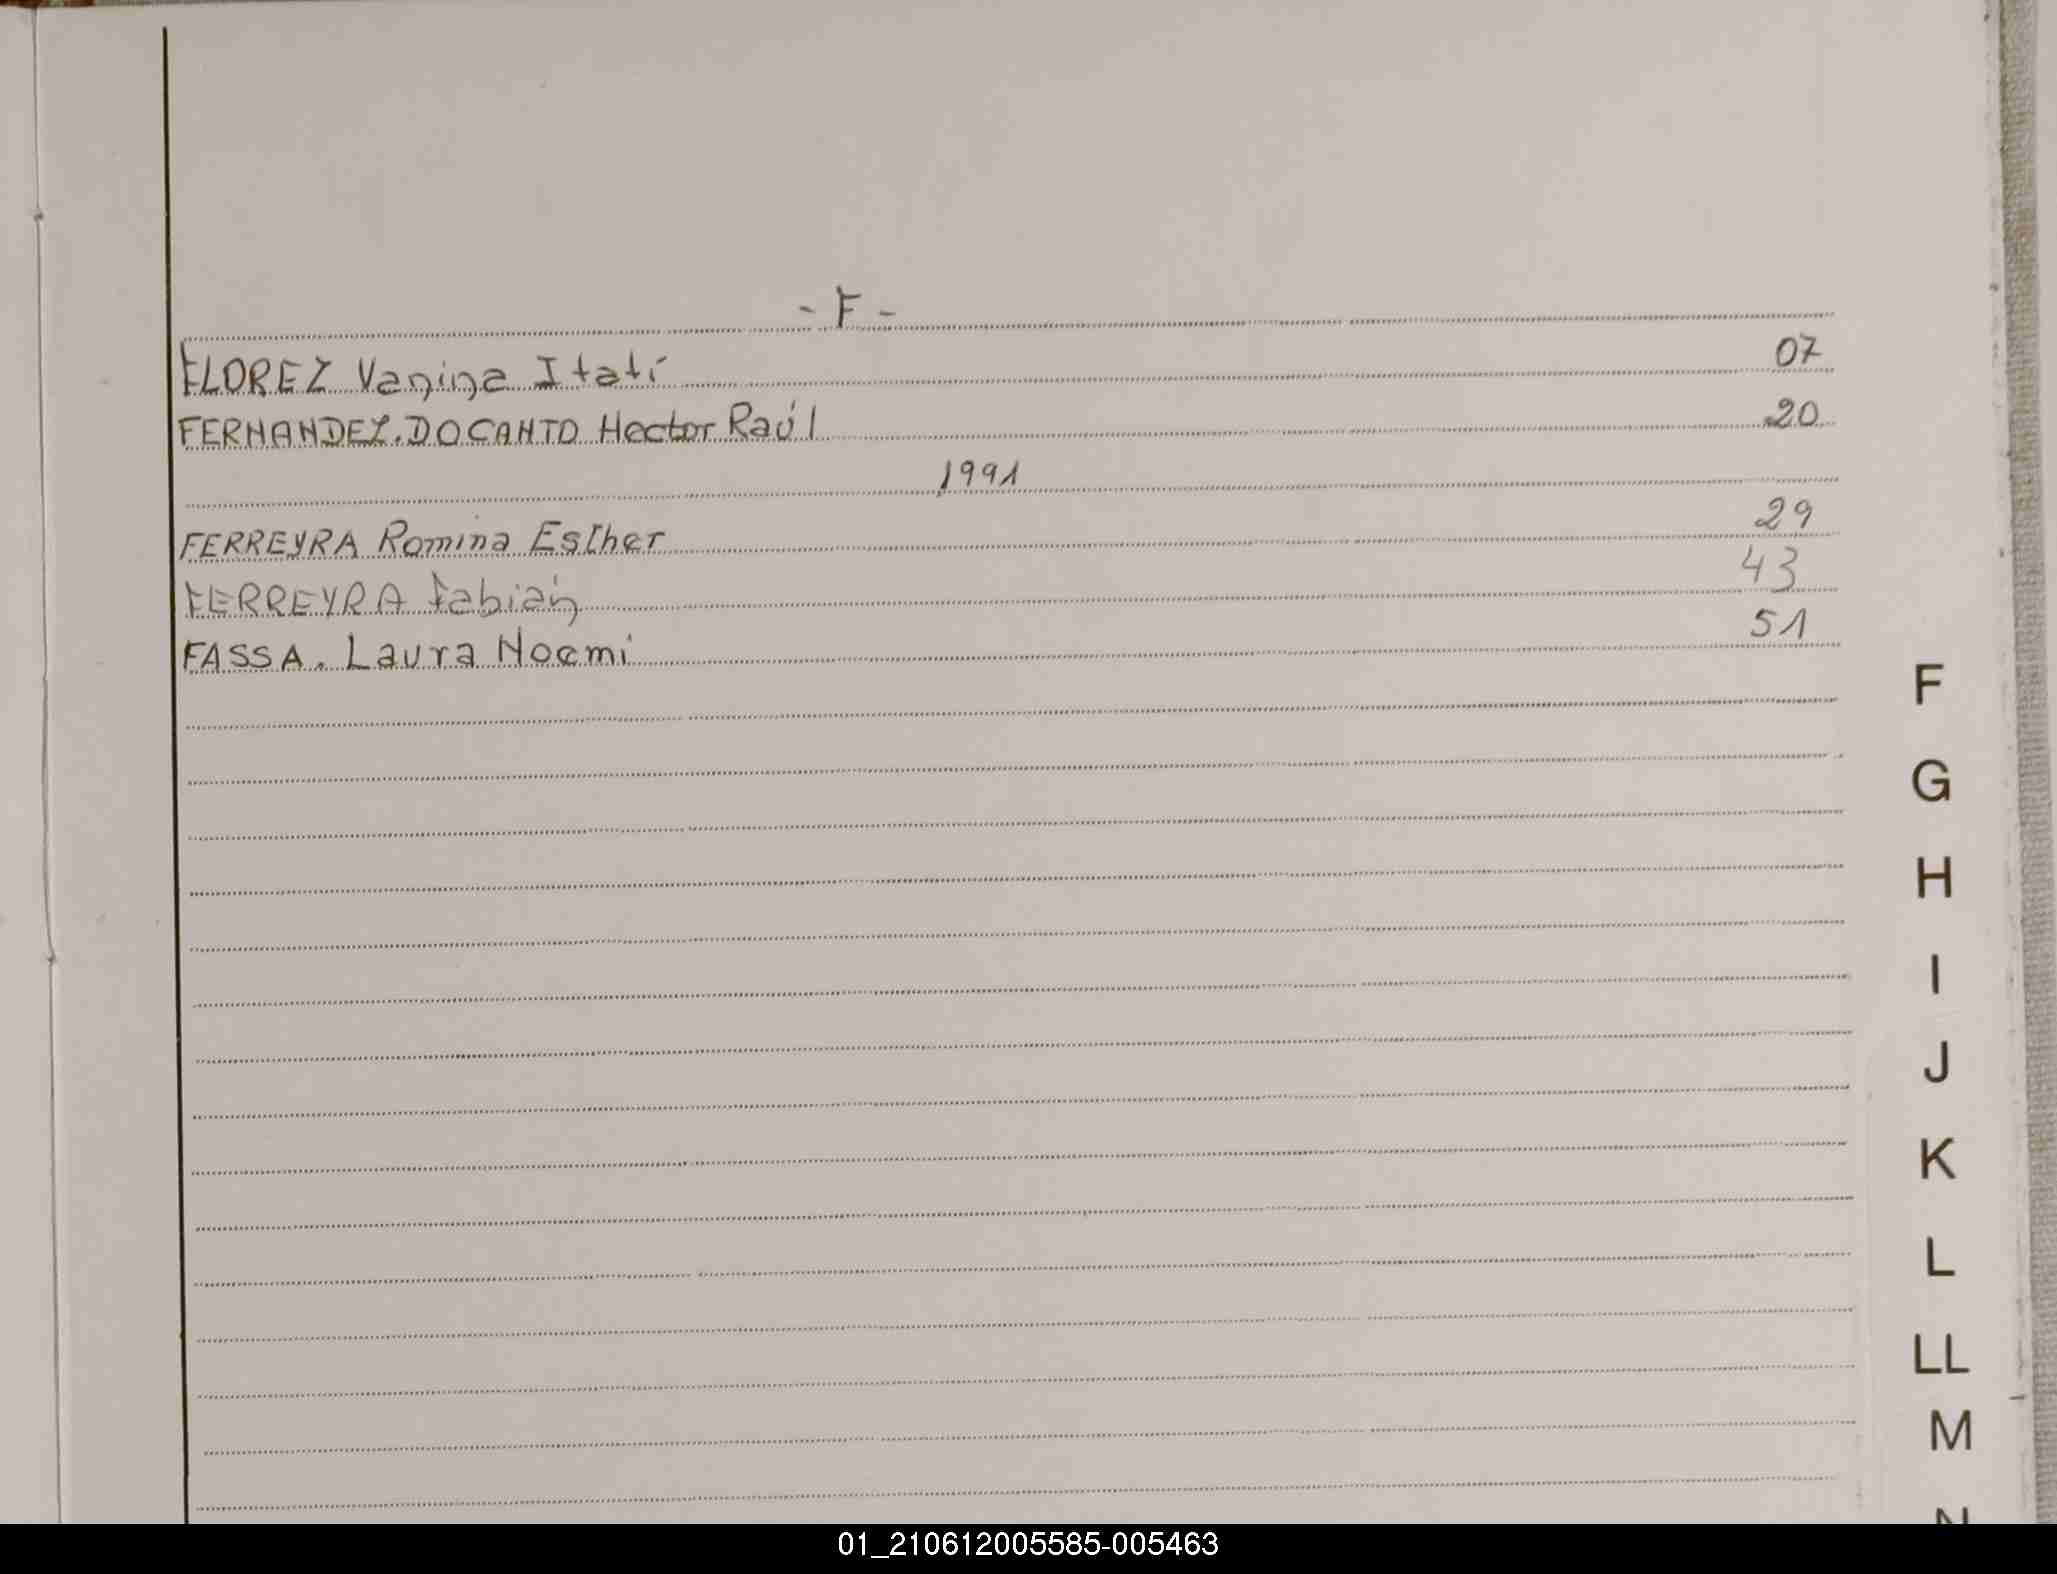 - F -
FLOREZ Vanina Itatí 07
FERNANDEZ. DOCANTO Hector Raúl 20
1991
FERREYRA Romina Esther 29
FERREYRA Fabián 43
FASSA. Laura Noemi 51
F
G
H
I
J
K
L
LL
M
N
01_210612005585-005463